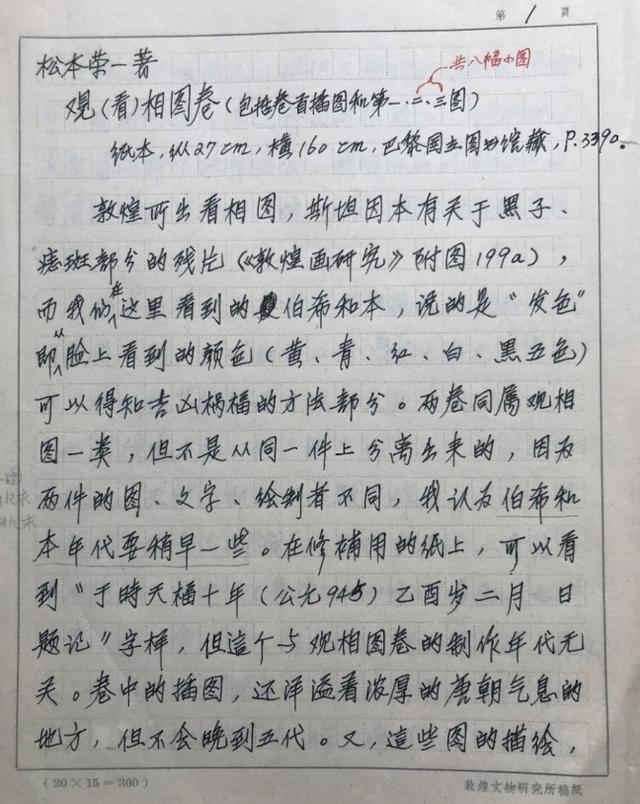 第 1 頁
松本荣一著
共八幅小图
观(看)相图卷(包括卷首插图和第一.二.三图)
纸本,纵27cm,横160cm,巴黎国立图书馆藏,P.3390。
敦煌所出看相图,斯坦因本有关于黑子、
痣斑部分的残片《敦煌画研究》附图199a),
而我们在这里看到的伯希和本,说的是“发色”
即从脸上看到的颜色(黄、青、红、白、黑五色)
可以得知吉凶祸福的方法部分。两卷同属观相
图一类,但不是从同一件上分离出来的,因为
两件的图、文字、绘制者不同,我认为伯希和
本年代要稍早一些。在修補用的纸上,可以看
到“于時天福十年(公元945)乙酉岁二月 日
题记”字样,但這个与观相图卷的制作年代无
关。卷中的插图,还洋溢着浓厚的唐朝气息的
地方,但不会晚到五代。又,這些图的描绘,
(20×15=300)
敦煌文物研究所稿纸